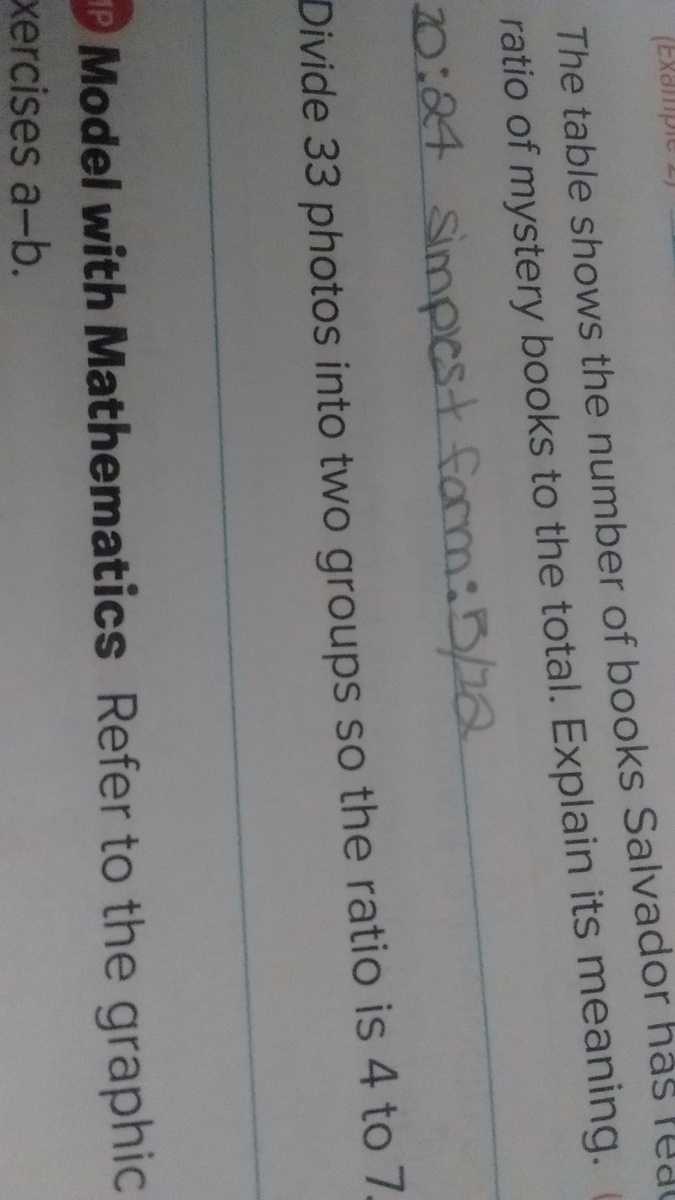 (Example 2)
The table shows the number of books Salvador has read
ratio of mystery books to the total. Explain its meaning. (
10:24 simplest form: 5/12
Divide 33 photos into two groups so the ratio is 4 to 7.
MP Model with Mathematics Refer to the graphic
xercises a–b.